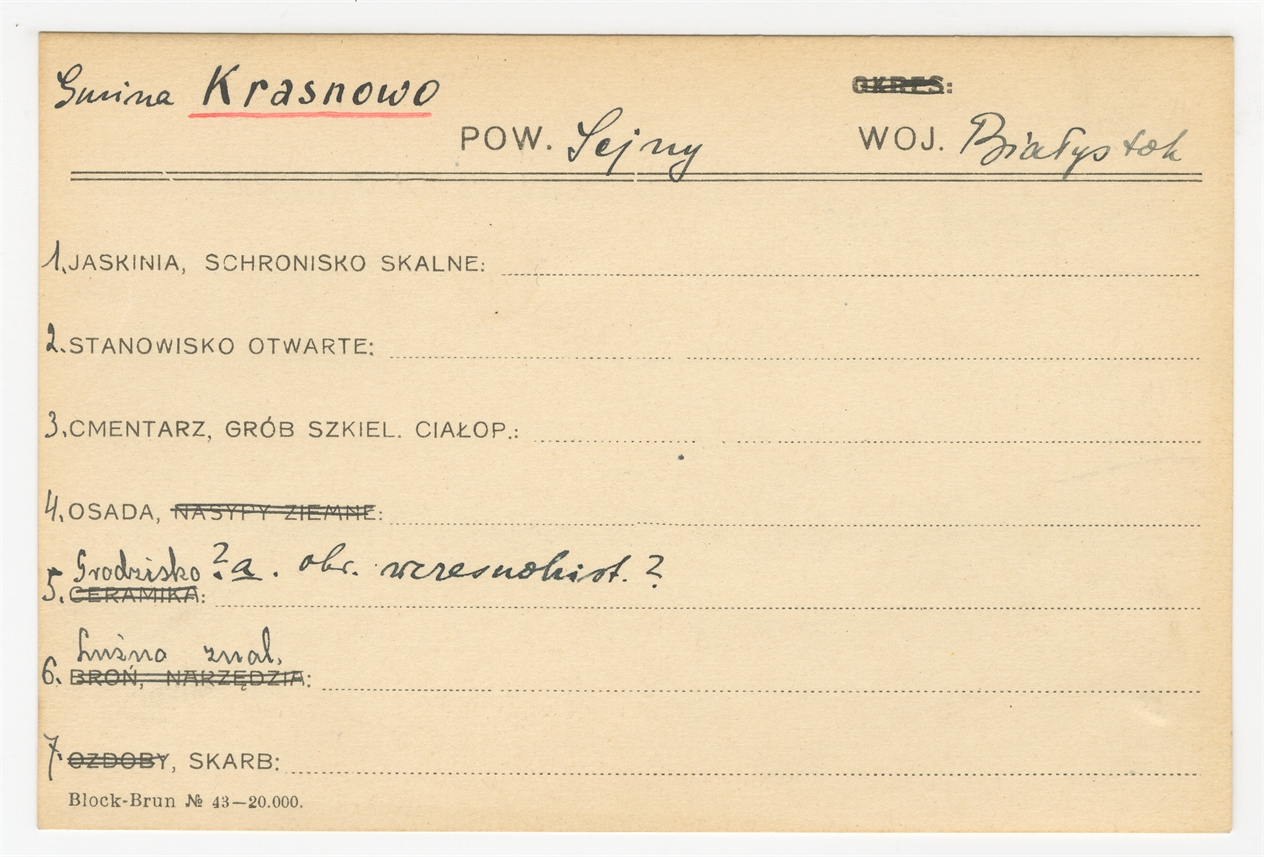 Gmina Krasnowo OKRES:
POW. Sejny WOJ. Białystok
1. JASKINIA, SCHRONISKO SKALNE:
2. STANOWISKO OTWARTE:
3. CMENTARZ, GRÓB SZKIEL. CIAŁOP.:
4. OSADA, NASYPY ZIEMNE:
Grodzisko ? a. okr. wczesnohist. ?
5. CERAMIKA:
Luźno znal.
6. BROŃ, NARZĘDZIA:
7. OZDOBY, SKARB:
Block-Brun № 43—20.000.